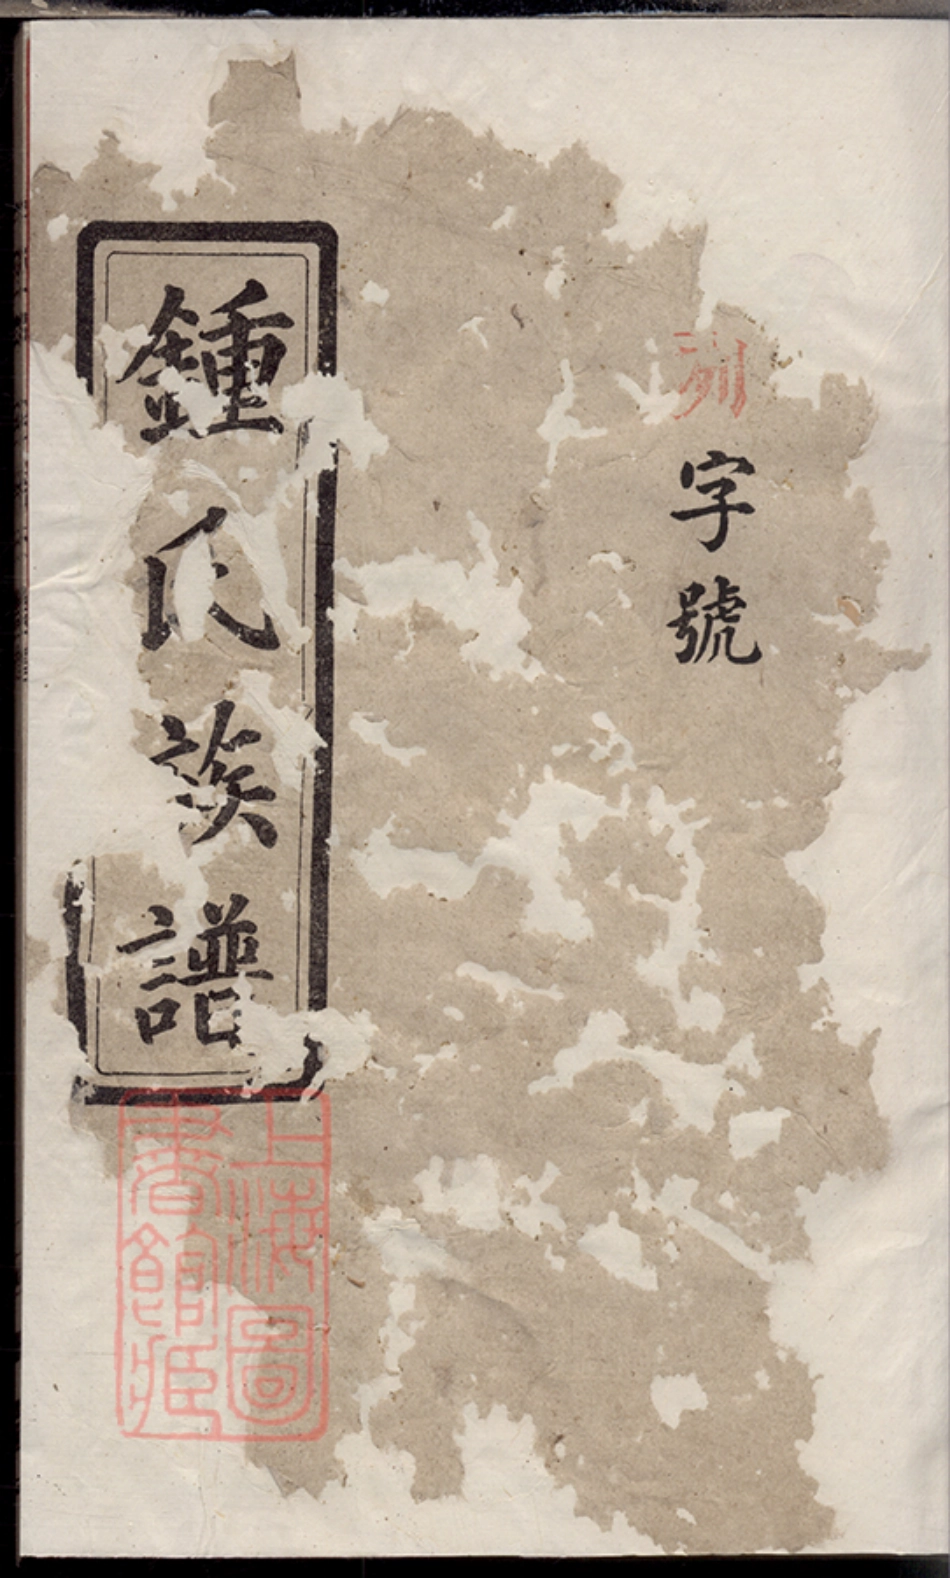 列字號
鍾氏族譜
上海圖書館藏